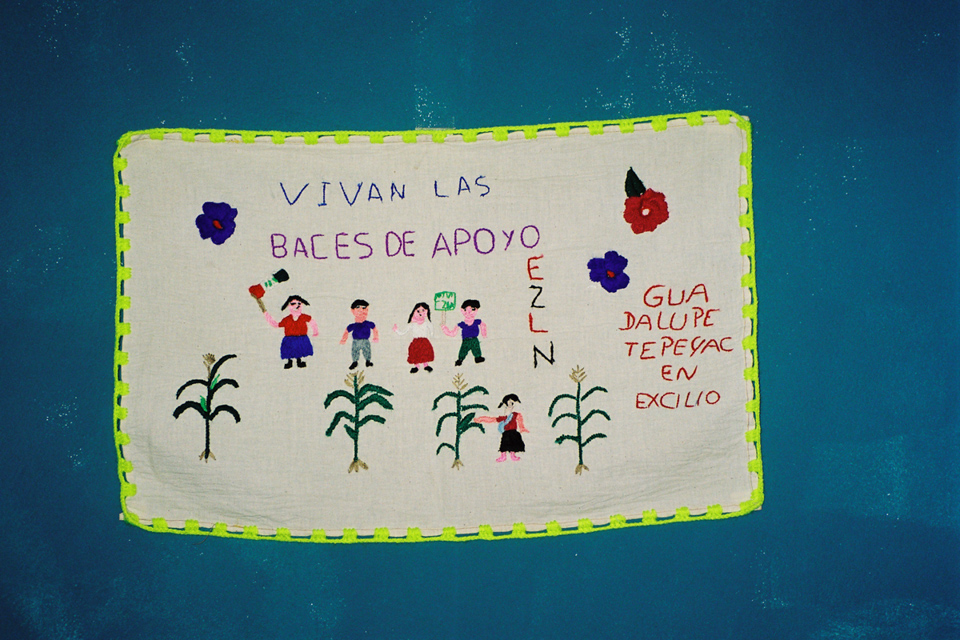 VIVAN LAS
BACES DE APOYO
EZLN
GUA
DALUPE
TEPEYAC
EN
EXCILIO